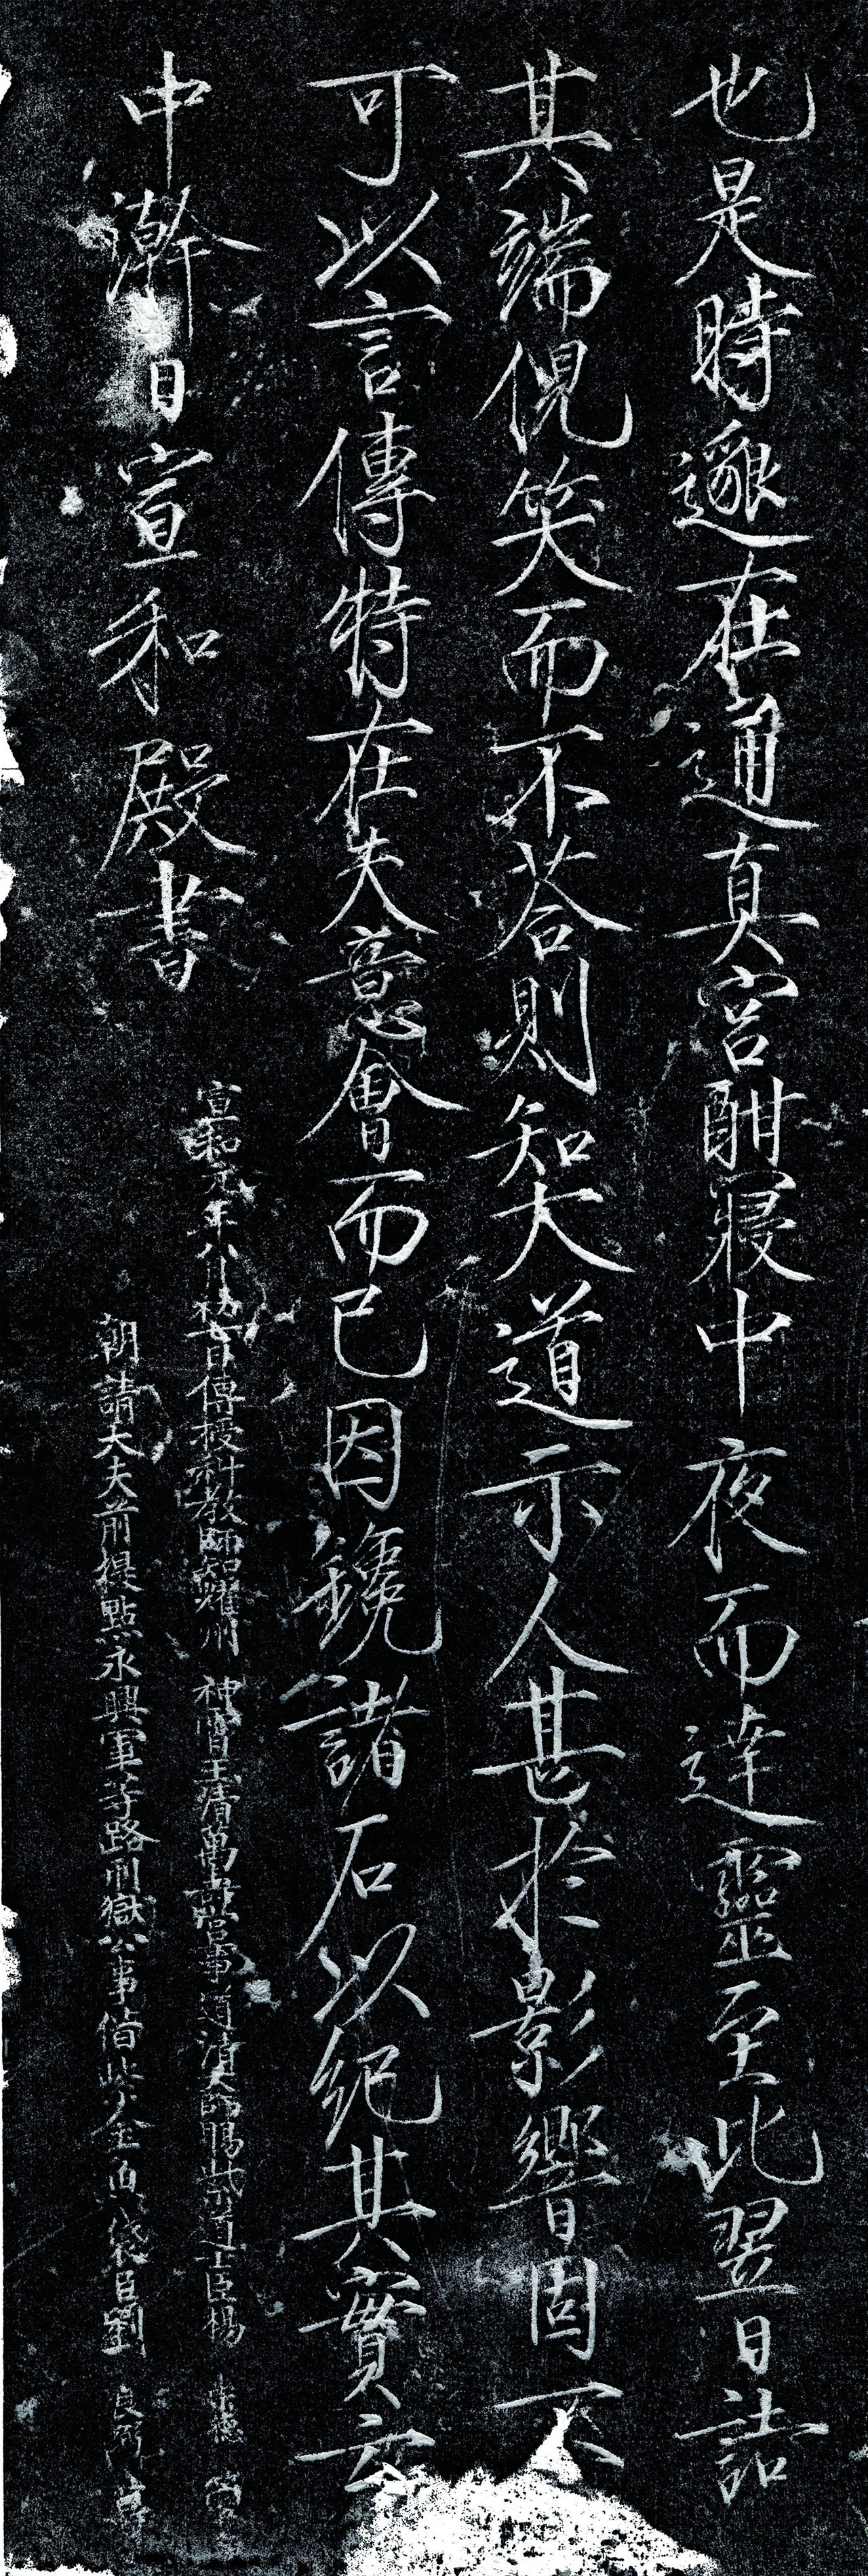 也是時邈在通真宮酣寢中夜而達靈至此翌日詰
其端倪笑而不荅則知大道示人甚於影響固不
可以言傳特在夫意會而已因鑱諸石以紀其實云
中澣日宣和殿書
宣和元年八月日傳授科教師知耀州 神霄玉清萬壽宮事道大師賜紫道士臣楊
朝請大夫前提點永興軍等路刑獄公事借紫金魚袋臣劉